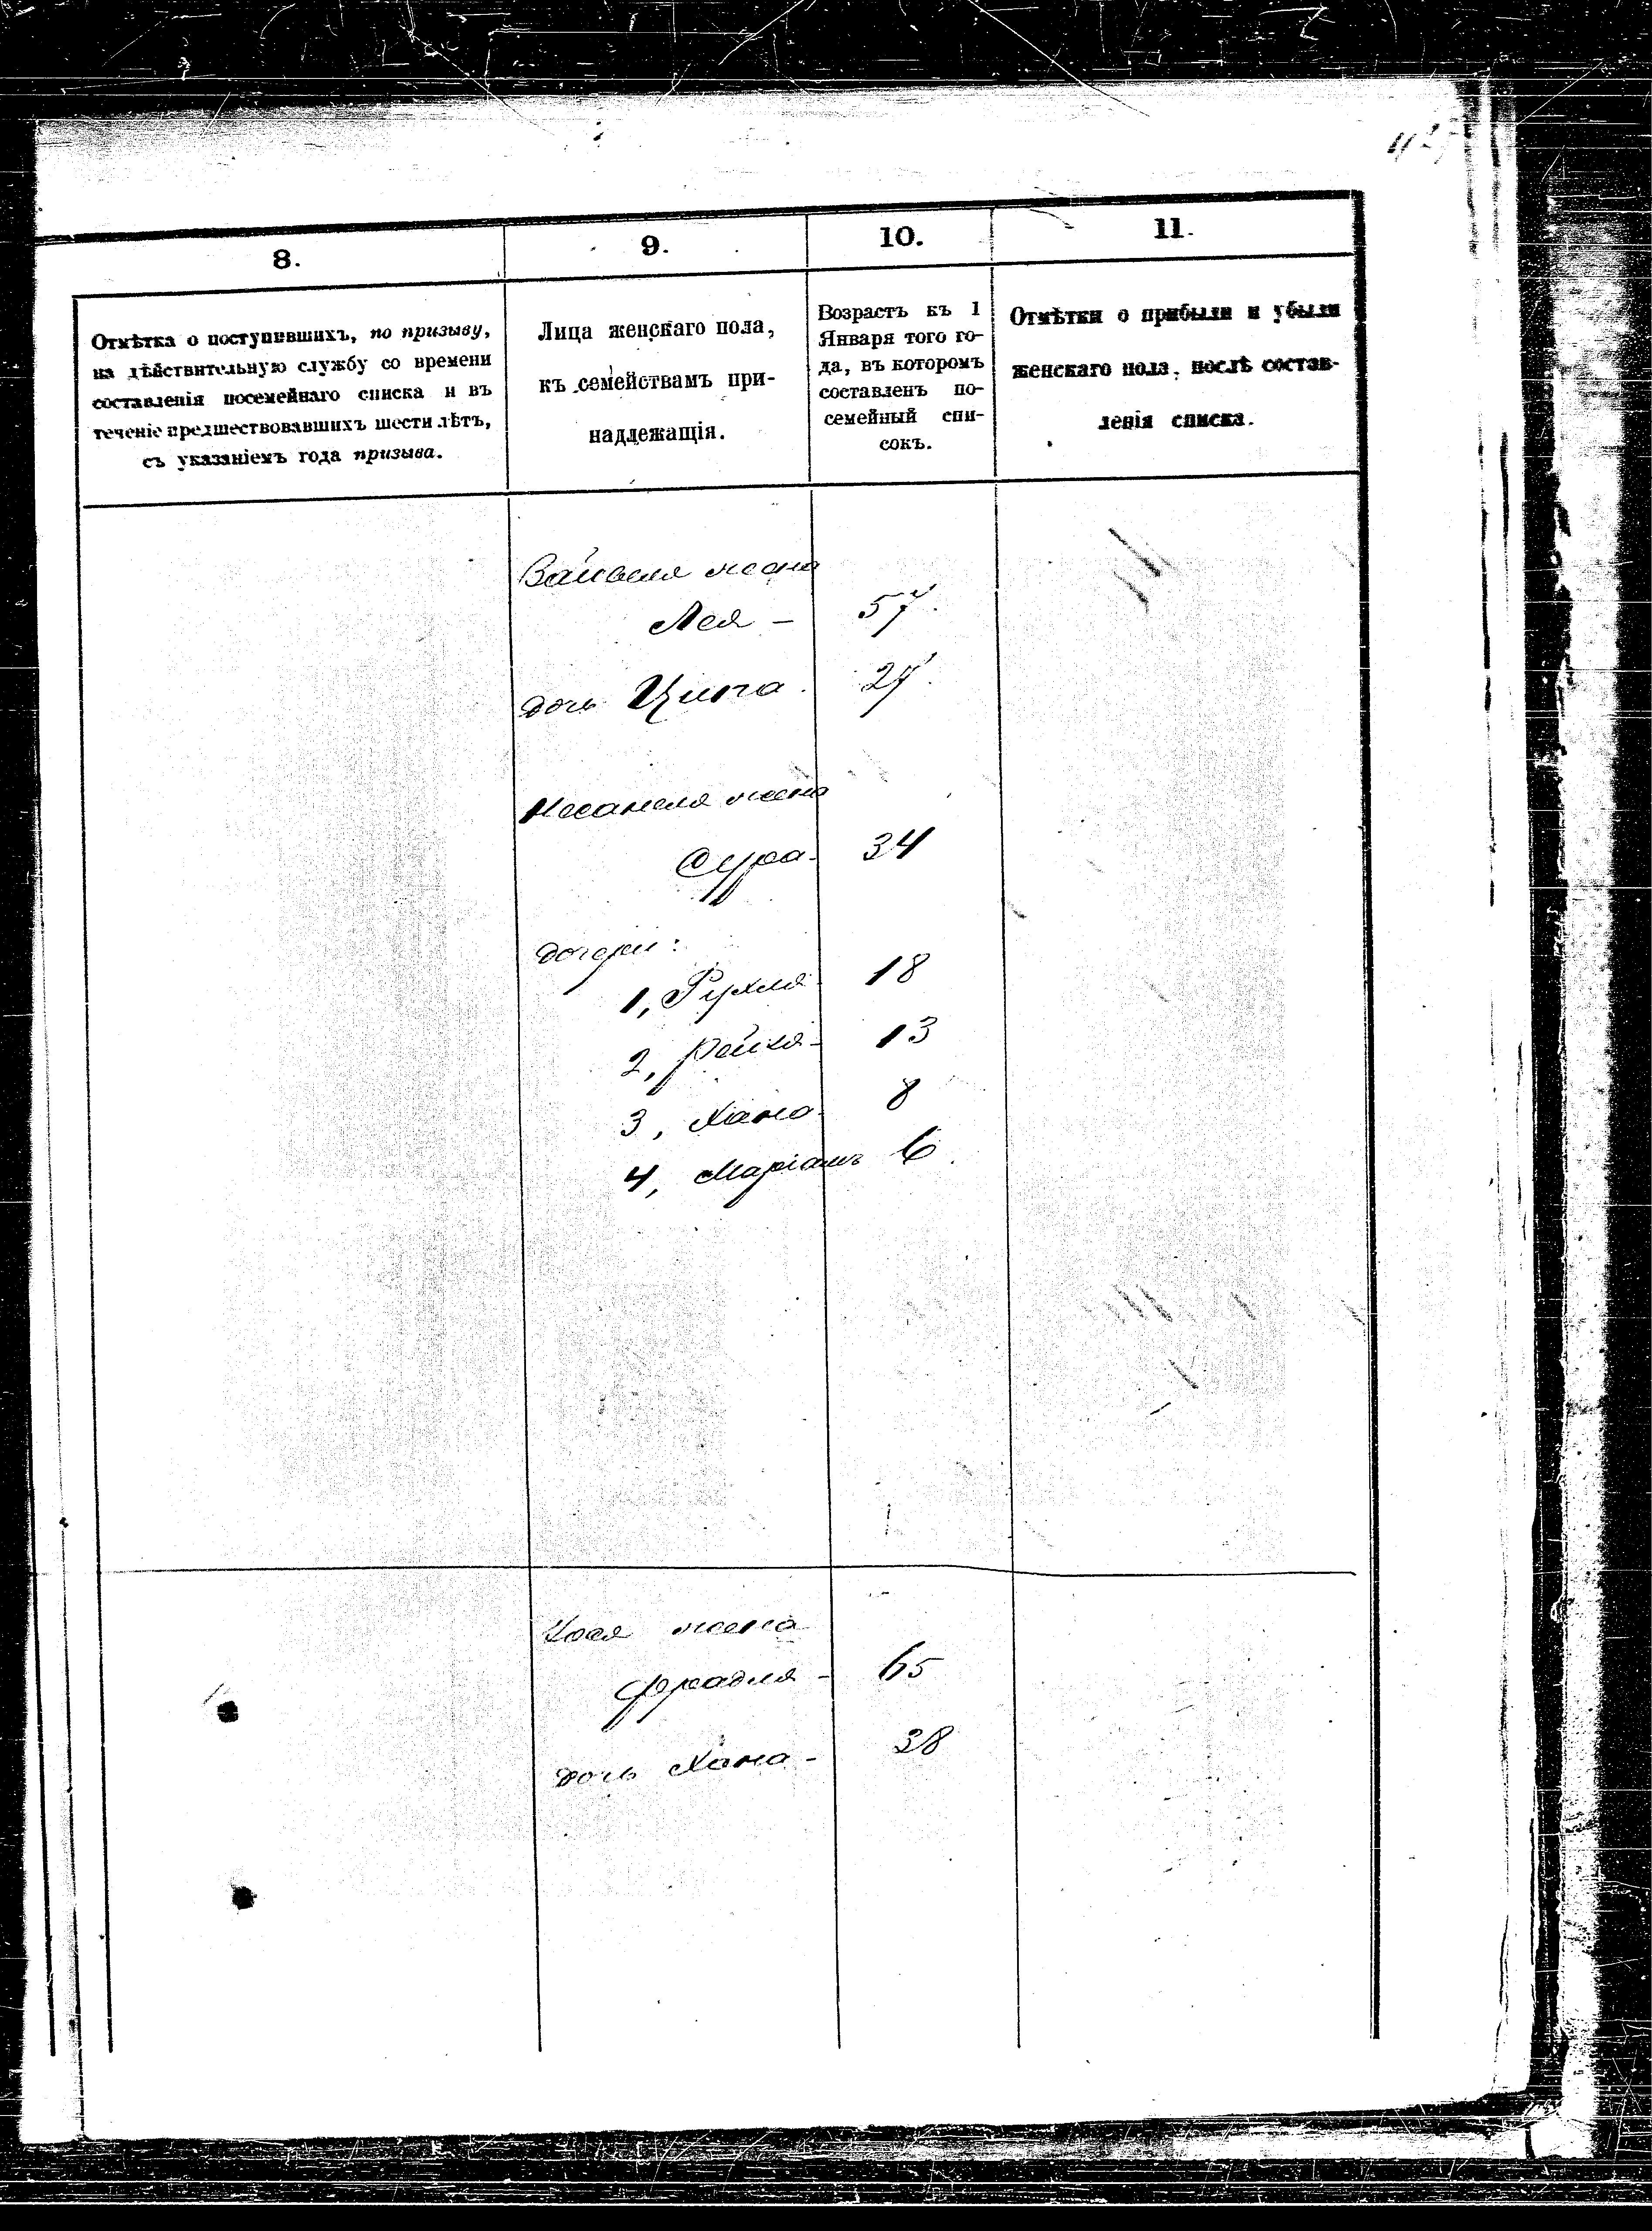 8.
9.
10.
11.
Отмѣтка о поступившихъ, по призыву,
на дѣйствительную службу со времени
составленія посемейнаго списка и въ
теченіе предшествовавшихъ шести лѣтъ,
съ указаніемъ года призыва.
Лица женскаго пола,
къ семействамъ при-
надлежащія.
Возрастъ къ 1
Января того го-
да, въ которомъ
составленъ по-
семейный спи-
сокъ.
Отмѣтки о прибыли и убыли
женскаго пола, послѣ состав-
ленія списка.
жена
Лея - 57.
дочь Ципа. 27.
жена
Сура - 34
дочери:
1, Рухля 18
2, Рейза - 13
3, Хана 8
4, Маріамъ 6.
жена
Фрадля - 65
дочь Хана - 38